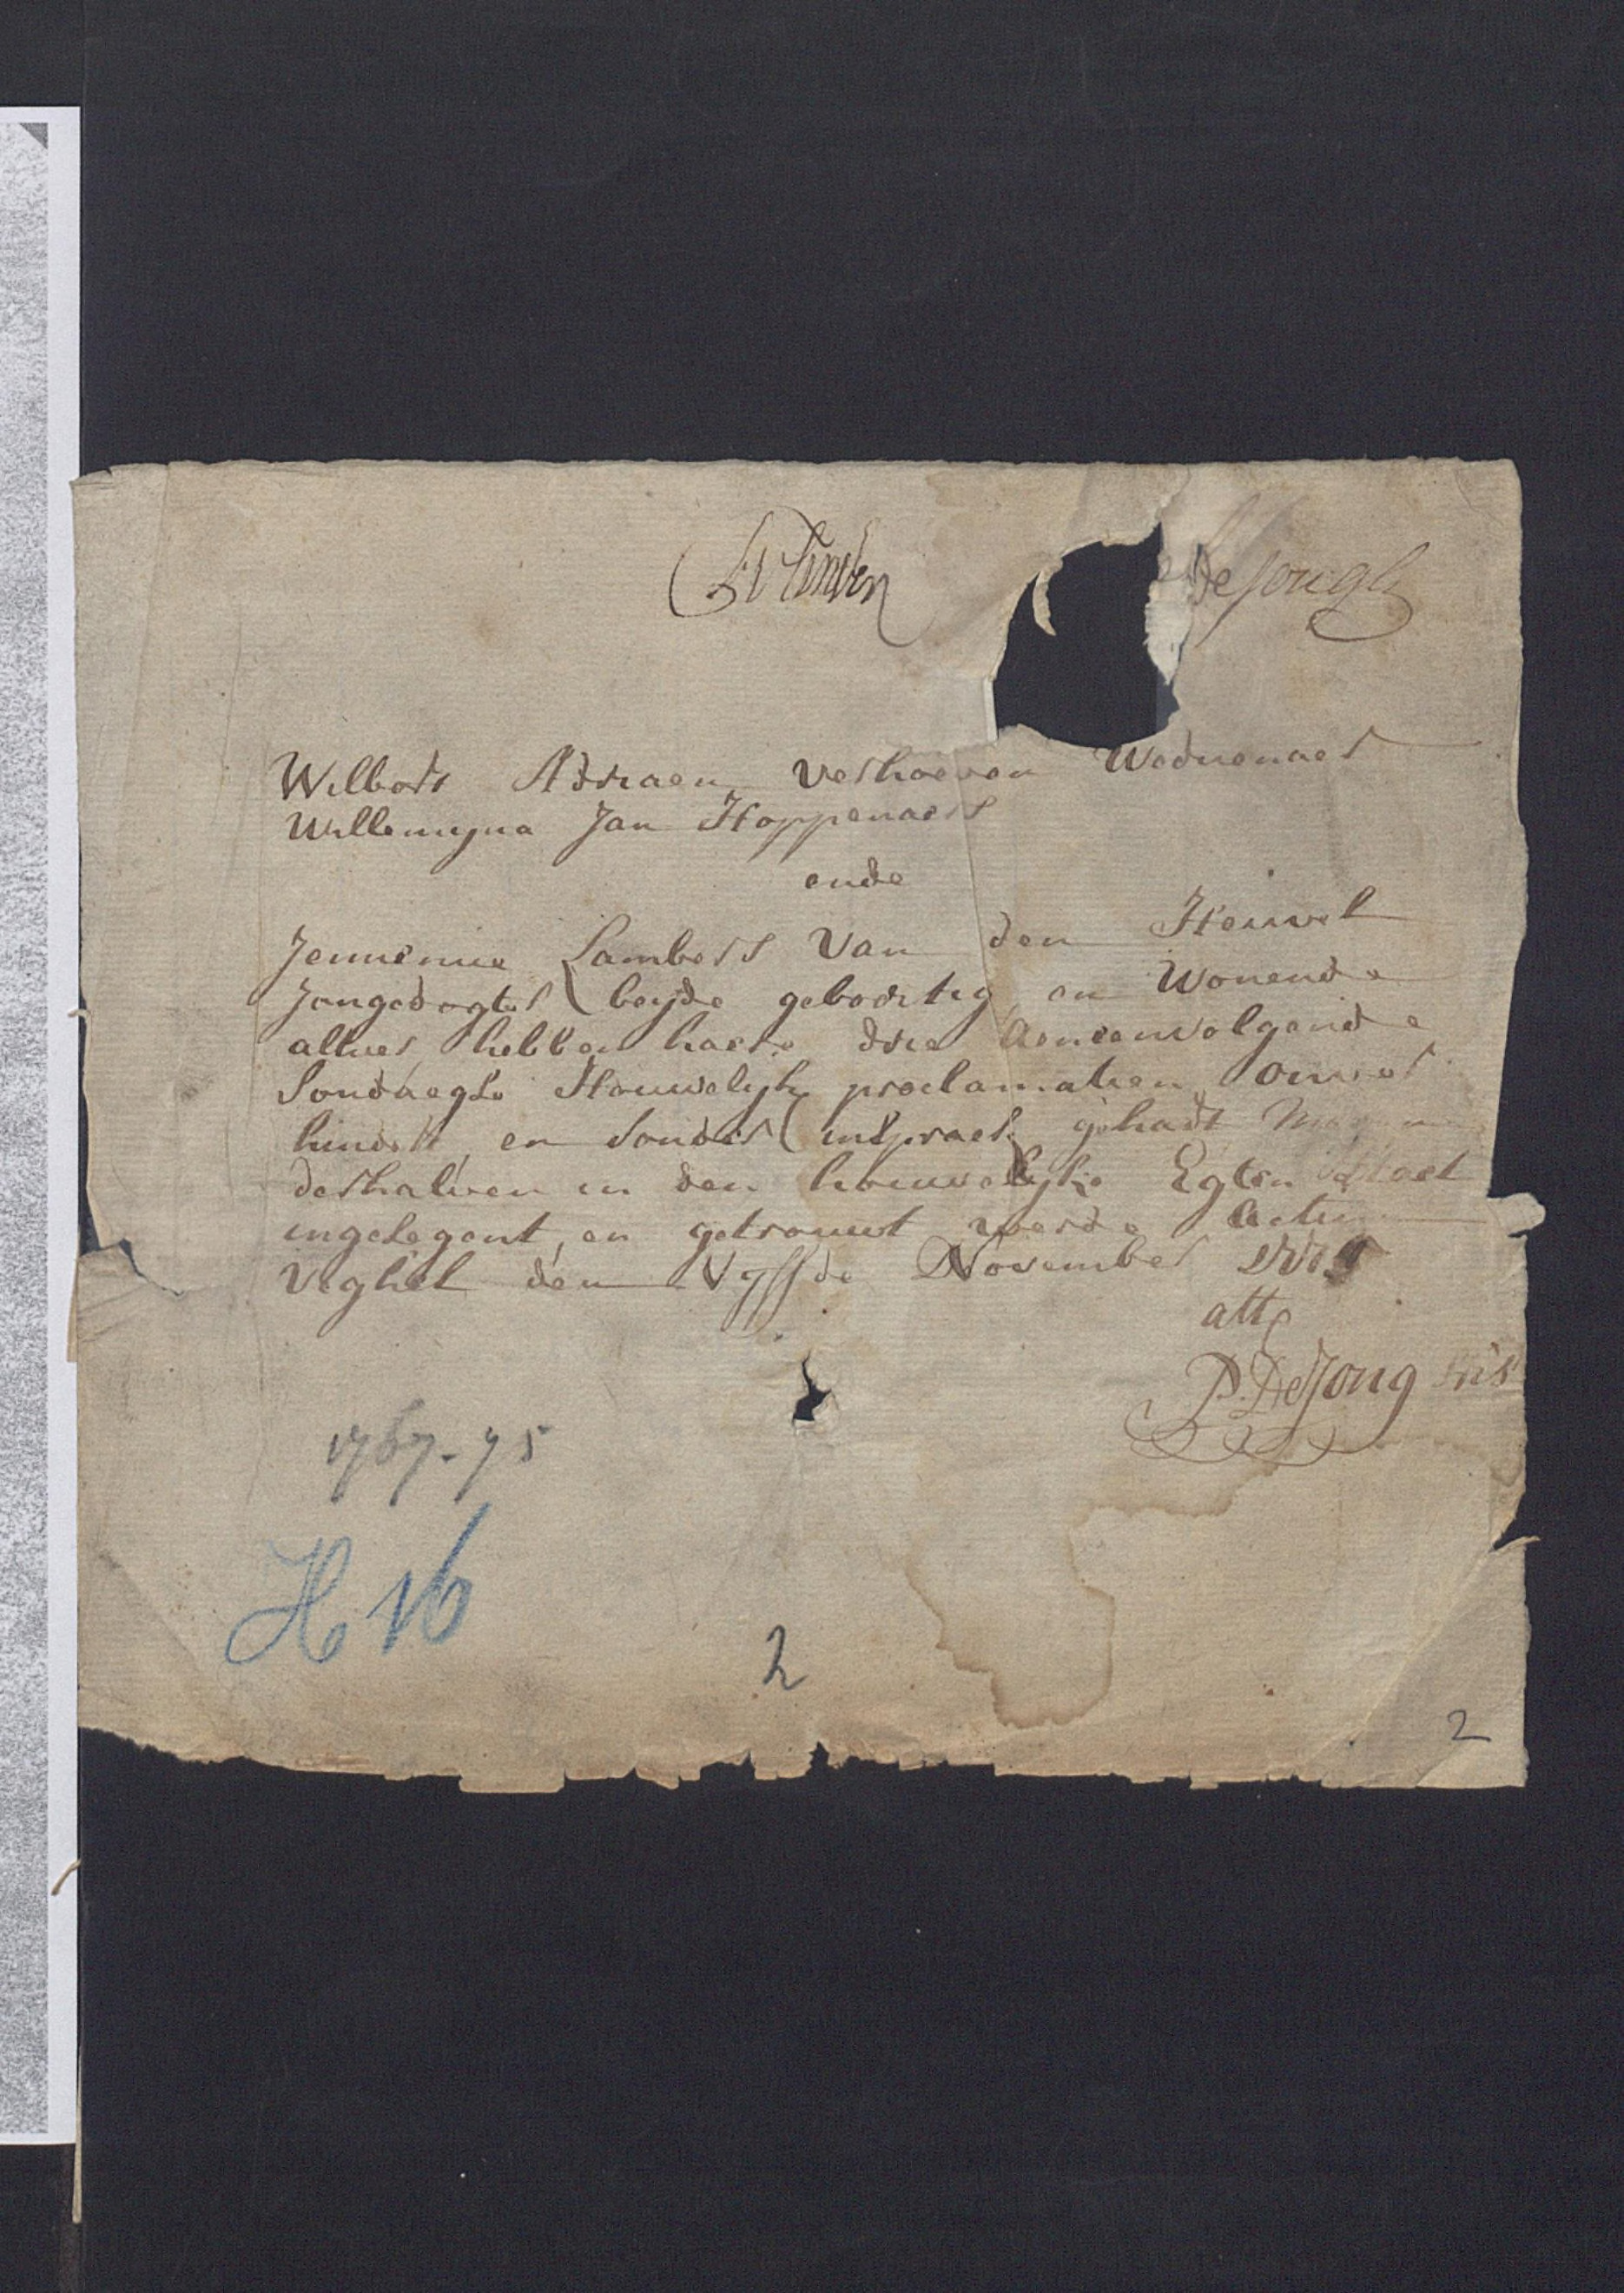 de Jongh
Wilbort Adriaen Verhoeven Weduenaer
Willemyna Jan Hoppenaers
ende
Jennemie Lambers Van den Heuvel
Jongedogter beyde geboortig en Wonende
alhier hebben haere drie Aeneenvolgende
Sondaegse Houwelyk proclamatien onver
hindert en sonder inspraek gehadt
derhalven in den houwelyke Egten Staet
ingesegent en getrouwt werde Actum
Veghel den Vyffde November
att
P. De Jong Sris
1767-75
H 16
2
2